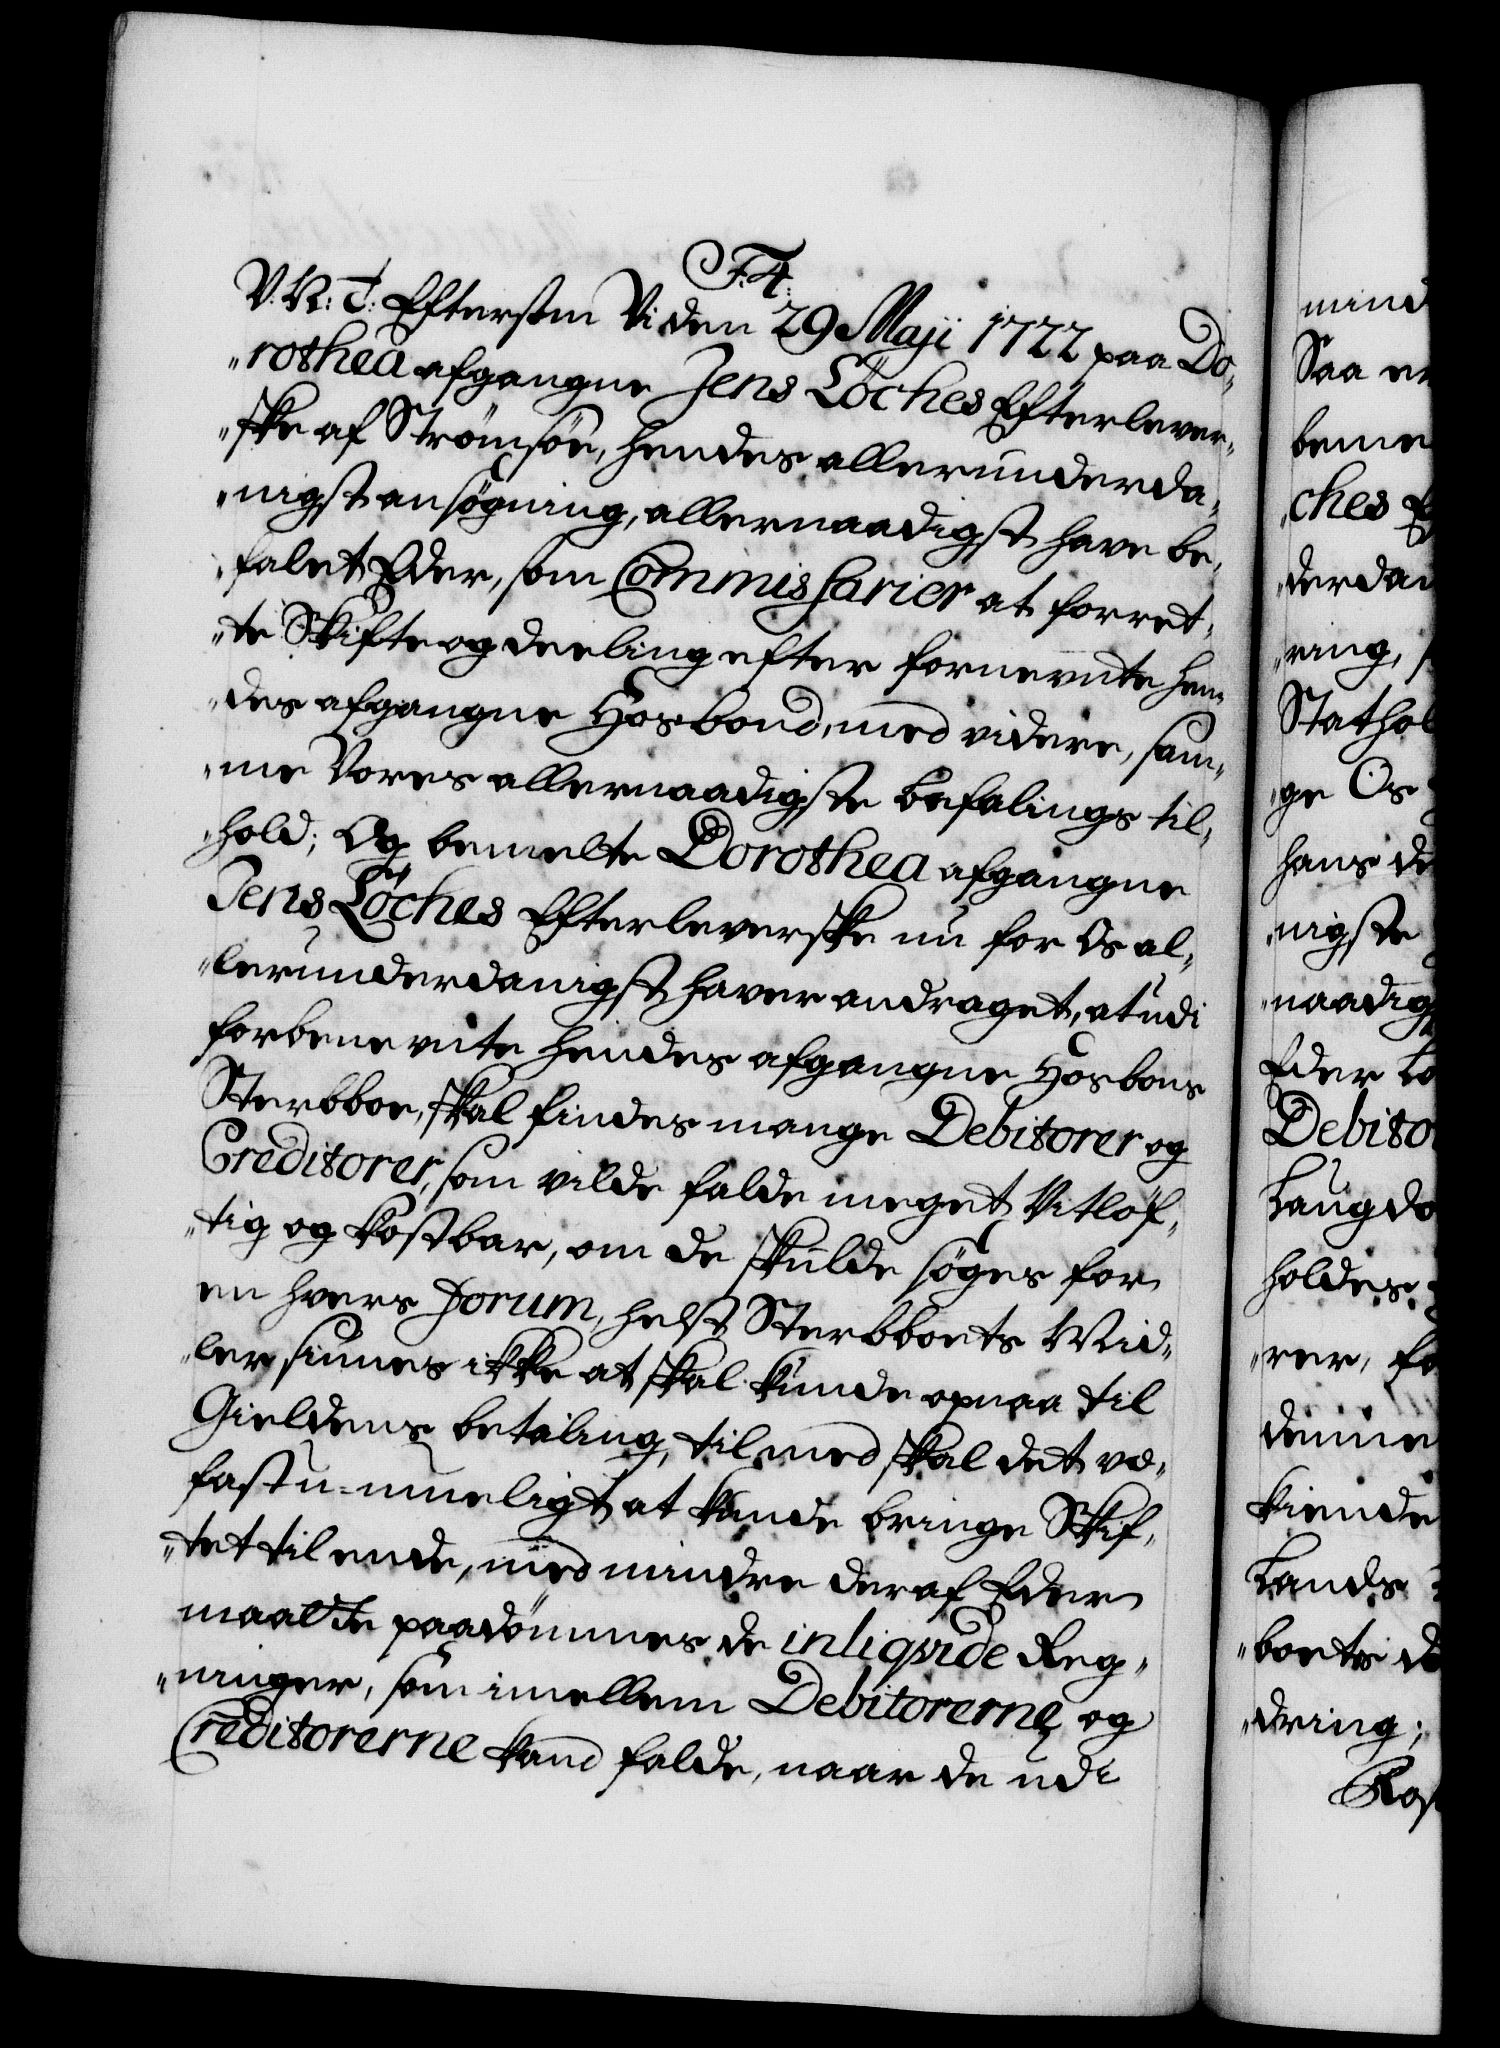 F. 4.
V. R: T: Eftersom Vi den 29 Maji 1722 paa Do„
„rothea afgangne Jens Löches Efterlever„
„ske af Strömsöe, hendes allerunderda„
„nigst ansögning, allernaadigst have be„
„falet Eder, som Commissarier at forret„
„te Skifte og deeling efter fornevnte hen„
„des afgangne Hosbond, med videre, sam„
„me Vores allernaadigste befalings til„
„hold; Og bemelte Dorothea afgangne
Jens Löches Efterleverske nu for Os al„
„lerunderdanigst haver andraget, at udi
forbenevnte hendes afgangne Hosbons
Sterbboe, skal findes mange Debitorer og
Creditorer, som vilde falde meget Vitlöf„
„tig og kostbar, om de skulde söges for
en hvers Forum, helst Sterbboets Mid„
„ler siunes ikke at skal kunde opnaa til
Gieldens betaling, tilmed skal det væ„
fast u-mueligt at kunde bringe Skif„
„tet til ende, med mindre der af Eder
maatte paadömmes de inliqvide Reg„
„ninger, som imellem Debitorerne og
Creditorerne kand falde, naar de udi
mind
Saa er
beme
„ches E
„derdan
„ring, s
Stathol
„ge Os
hans de
„nigste
„naadig
Eder
Debito
Laugda
holdes
„rer, fo
denne
kiende
Lands
„boets de
„dring;